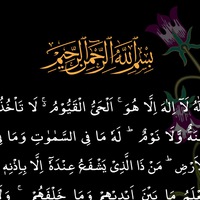 بِسْمِ اللّٰهِ الرَّحْمٰنِ الرَّحِيْمِ
لَآ اِلٰهَ اِلَّا هُوَ ۚ اَلْحَىُّ الْقَيُّوْمُ ۚ لَا تَاْخُذُ
وَّلَا نَوْمٌ ؕ لَهٗ مَا فِى السَّمٰوٰتِ وَمَا فِى
مَنْ ذَا الَّذِىْ يَشْفَعُ عِنْدَهٗۤ اِلَّا بِاِذْنِهٖ
مَا بَيْنَ اَيْدِيْهِمْ وَمَا خَلْفَهُمْ ۚ